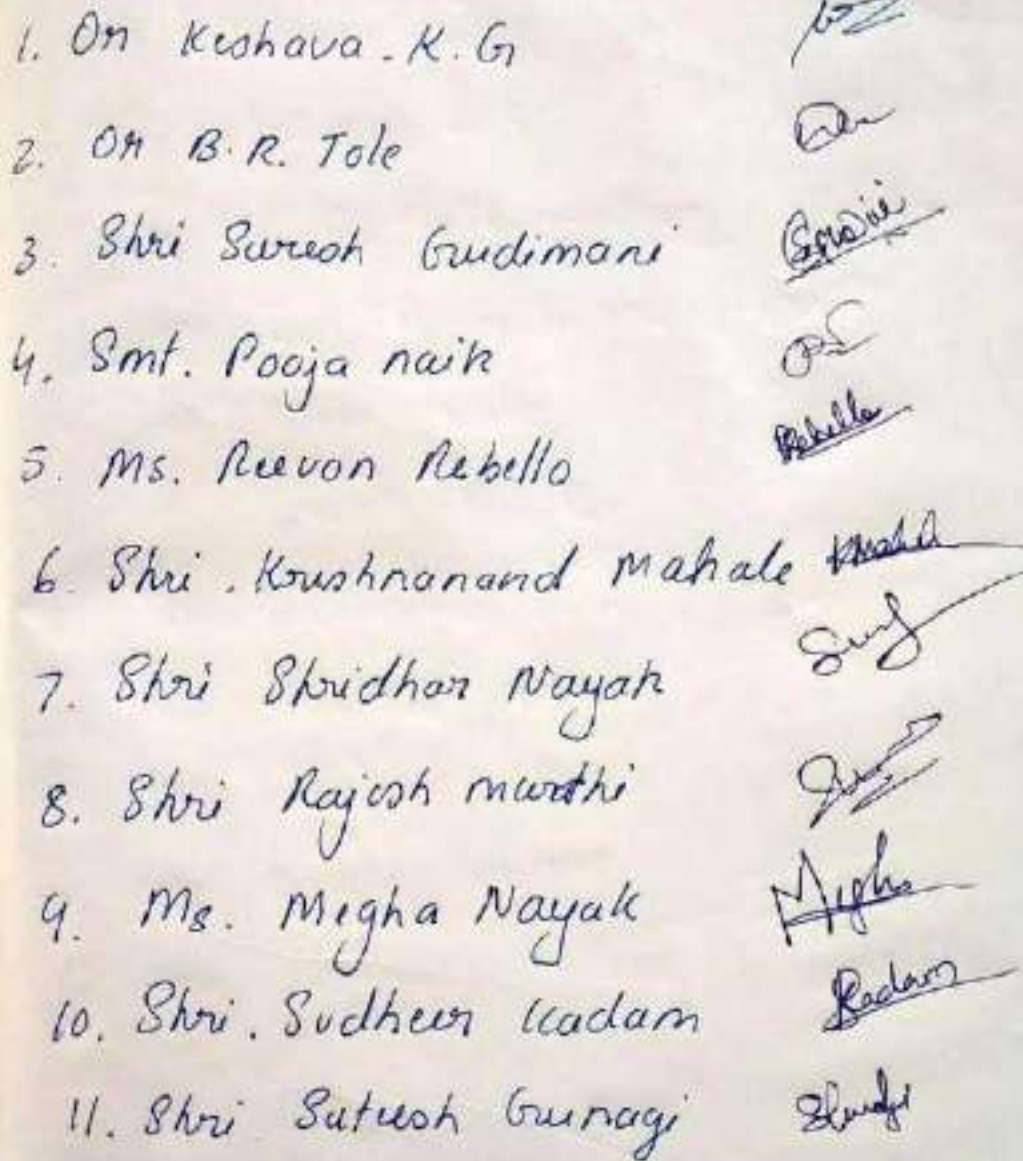 1. Dr Keshava. K. G
2. Dr B. R. Tole
3. Shri Suresh Gudimani
4. Smt. Pooja naik
5. Ms. Reevon Rebello Rebello
6. Shri. Krushnanand Mahale
7. Shri Shridhar Nayak
8. Shri Rajesh murthi
9. Ms. Megha Nayak Megha
10. Shri. Sudheer Kadam Kadam
11. Shri Suteesh Gunagi